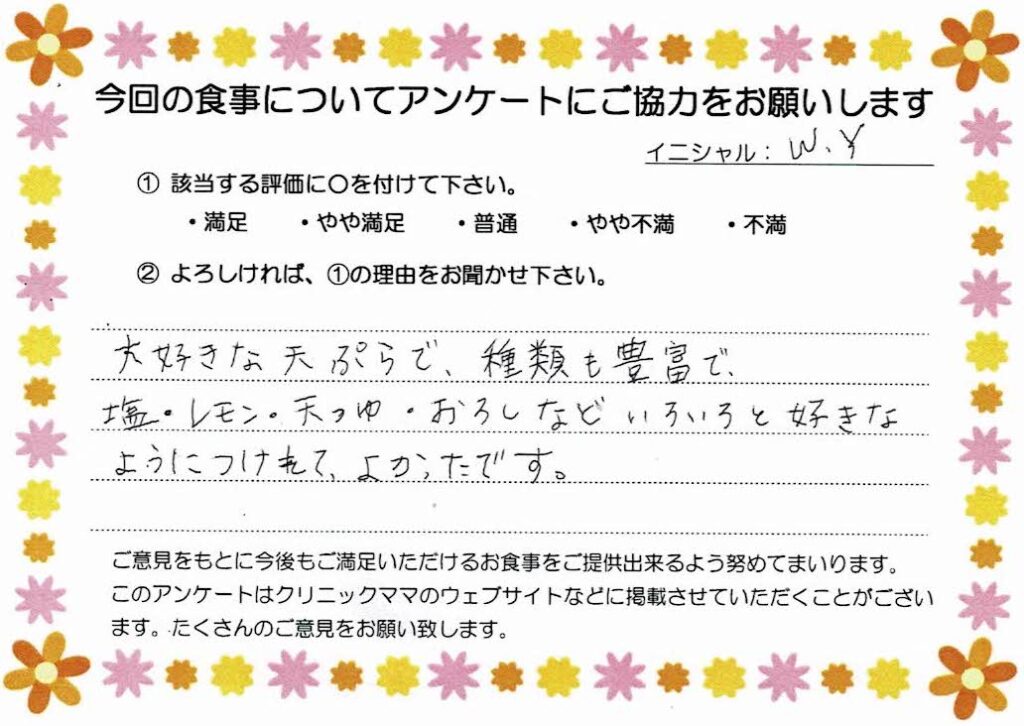 今回の食事についてアンケートにご協力をお願いします
イニシャル： W.Y
① 該当する評価に○を付けて下さい。
・満足 ・やや満足 ・普通 ・やや不満 ・不満
② よろしければ、①の理由をお聞かせ下さい。
大好きな天ぷらで、種類も豊富で、
塩・レモン・天つゆ・おろしなどいろいろと好きな
ようにつけれて、よかったです。
ご意見をもとに今後もご満足いただけるお食事をご提供出来るよう努めてまいります。
このアンケートはクリニックママのウェブサイトなどに掲載させていただくことがござい
ます。たくさんのご意見をお願い致します。